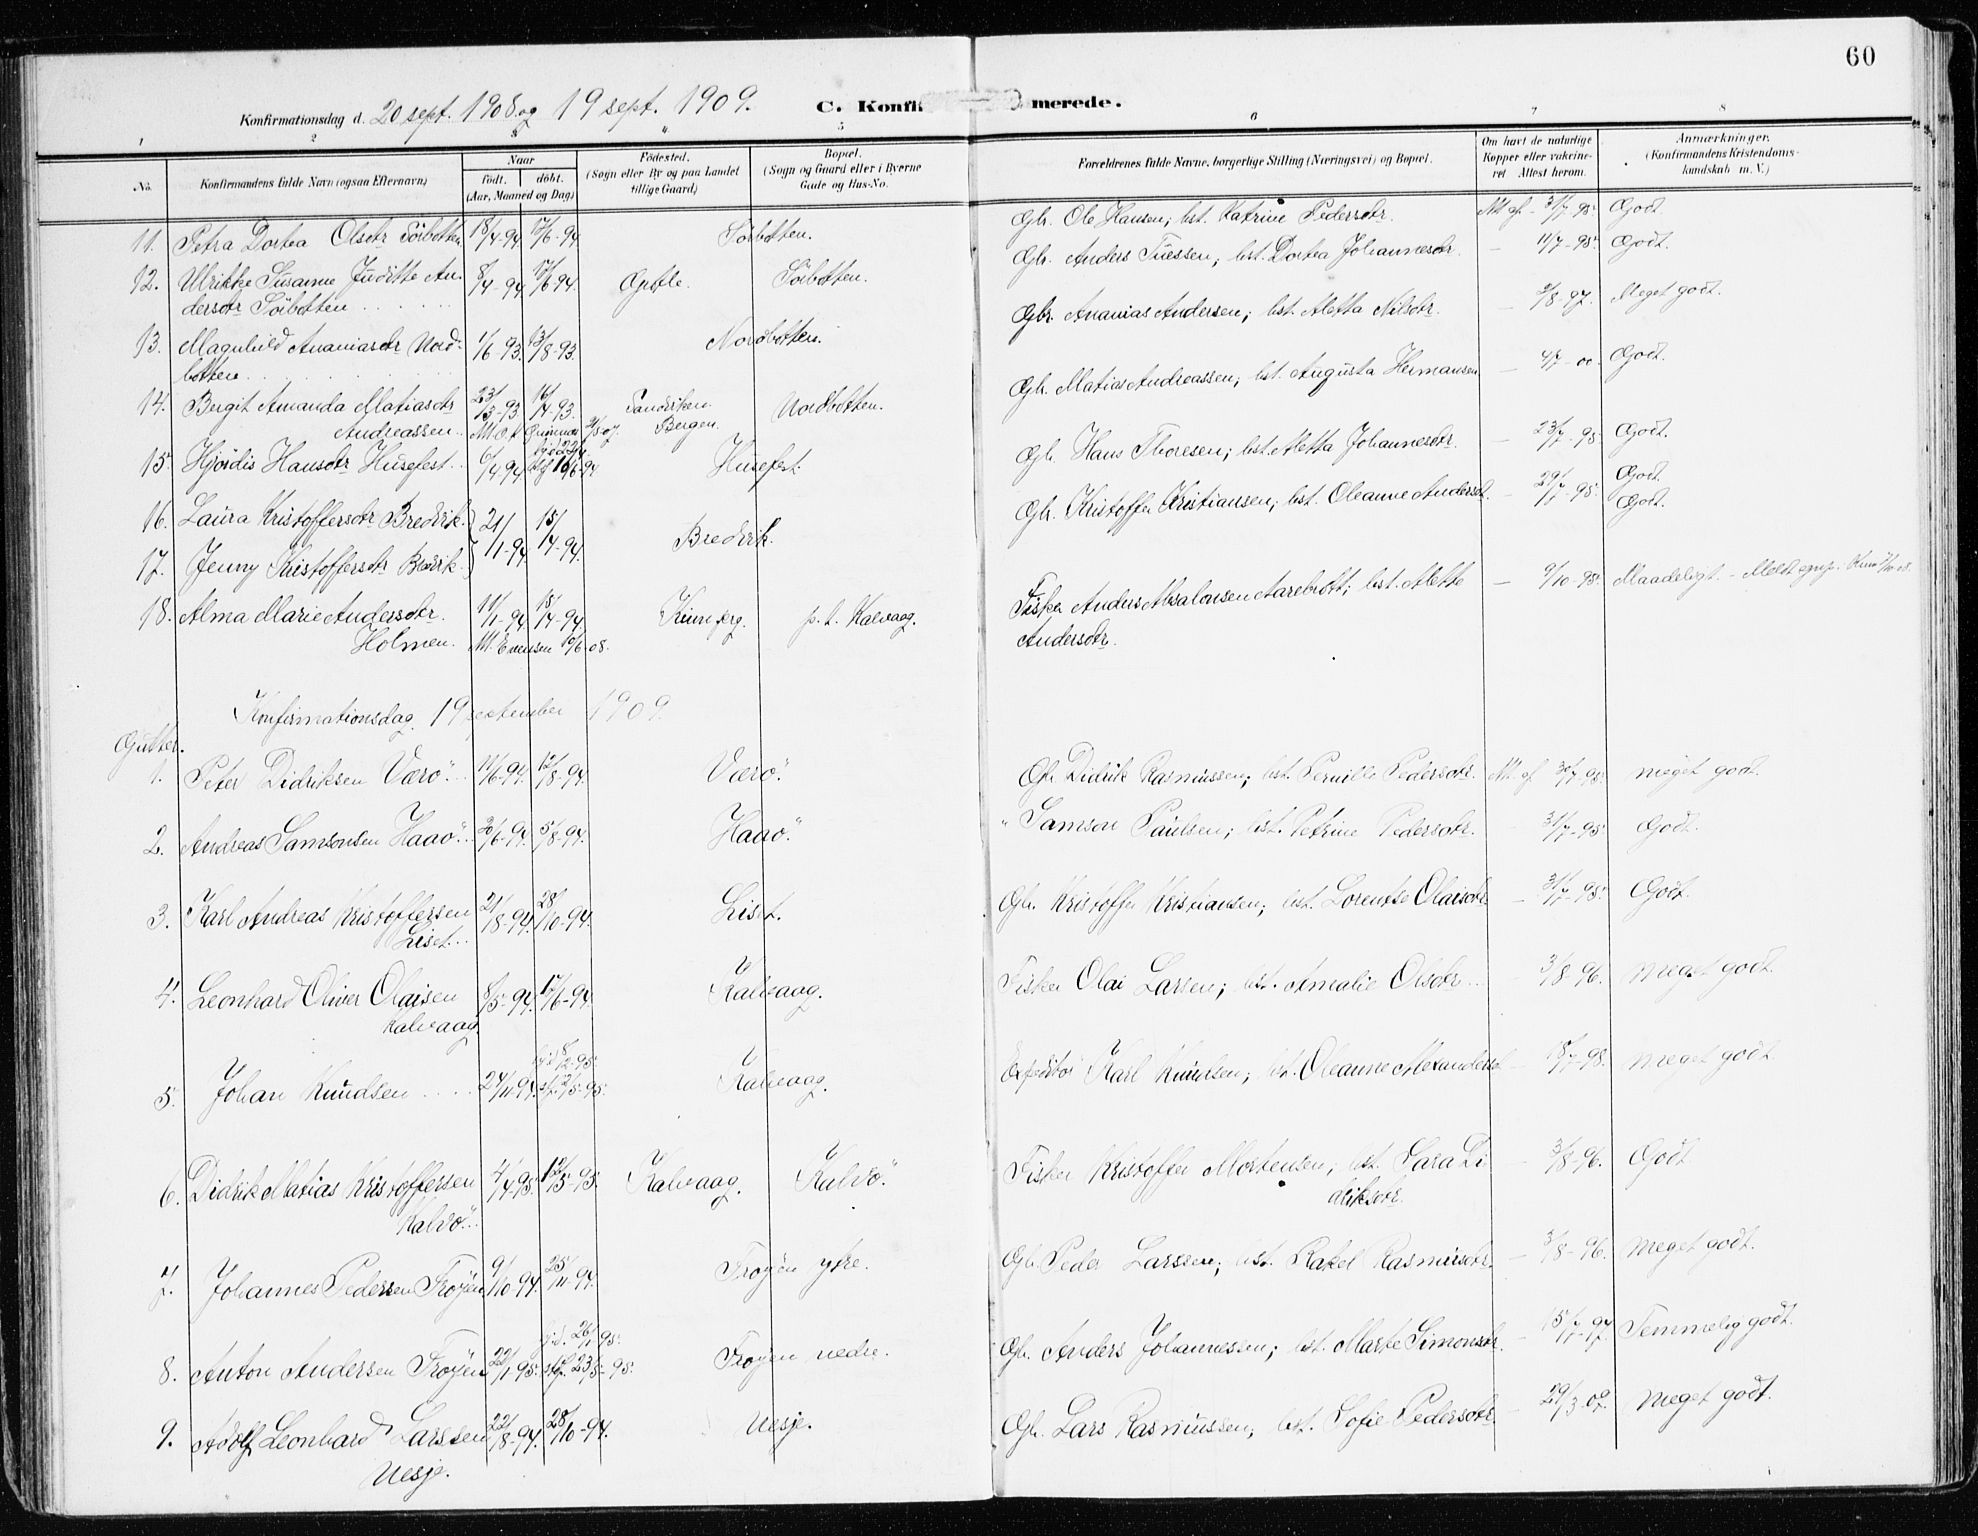 60
Konfirmationsdag d. 20 sept. 1908 og 19 sept. 1909.
C. Konfir merede.
1 2 3 4 5 6 7 8
No.
Konfirmandens fulde Navn (ogsaa Efternavn)
Naar
født. døbt.
(Aar, Maaned og Dag)
Fødested.
(Sogn eller By og paa Landet
tillige Gaard)
Bopæl.
(Sogn og Gaard eller i Byerne
Gade og Hus-No.
Forældrenes fulde Navne, borgerlige Stilling (Næringsvei) og Bopæl.
Om havt de naturlige
Kopper eller vakcine-
ret. Attest herom.
Anmærkninger.
(Konfirmandens Kristendoms-
kundskab m. V.)
11. Petra Dortea Olsdtr Sörbotten 18/4-94 17/6-94 Sörbotten. Gbr. Ole Hansen; hst. Katrine Pedersdtr. Att af - 31/7-95. Godt.
12. Ulrikke Susanne Juditte An- 8/4-94 17/6-94. Sörbotten. Gbr. Anders Tuessen; hst. Dortea Johannesdtr. - 11/7-95. Godt.
dersdtr Sörbotten
13. Magnhild Ananiasdtr Nord- 1/6-93. 13/8-93. Nordbotten. Gbr. Ananias Andersen; hst. Aletta Nilsdtr. 3/8-97. Meget godt.
botten
14. Bergit Amanda Matiasdtr 23/3-93 16/4-93. Sandviken. Nordbotten. Gbr. Matias Andreassen; hst. Augusta Hermansen - 4/7-00. Godt.
Andreassen. Bergen.
15. Hjördis Hansdtr Husefest 6/4-94 Husefest. Gbr. Hans Thoresen; hst. Aletta Johannesdtr. - 23/7-95. Godt.
16. Laura Kristoffersdtr Bredvik. 21/1-94. 15/4-94. Bredvik. Gbr. Kristoffer Kristiansen; hst. Oleanne Andersdt. - 29/7-95. Godt.
17. Jenny Kristoffersdtr Bredvik. Godt.
18. Alma Marie Andersdtr. 11/1-94. 15/4-94. Kinn prg. p. t. Kalvaag. Fisker Anders Absalonsen Aarebrott; hst. Alette - 9/10-95. Maadeligt. -
Holmen. Att. Evensen 10/6-08. Andersdtr.
Konfirmationsdag 19 september 1909.
Gutter.
1. Peter Didriksen Værö. 11/6-94. 12/8-94. Værö. Gbr Didrik Rasmussen; hst. Pernille Pedersdtr. Att. af 30/7-95. meget godt.
2. Andreas Samsonsen Haaö. 30/6-94. 5/8-94. Haaö. " Samson Paulsen; hst. Petrine Pedersdtr. - 31/7-95. Godt.
3. Karl Andreas Kristoffersen 21/8-94. 28/10-94. Liset. Gbr. Kristoffer Kristiansen; hst. Lorentse Olaisdtr. - 31/7-95. Godt.
Liset.
4. Leonhard Oliver Olaisen 8/5-94. 17/6-94. Kalvaag. Fisker Olai Larsen; hst. Amalie Olsdtr. 3/8-96. meget godt.
Kalvaag.
5. Johan Knudsen 24/11-94. Kalvaag. Expeditör Karl Knudsen; hst. Oleanne Alexandersd. - 18/7-98. meget godt.
6. Didrik Matias Kristoffersen 4/4-95. 12/5-95. Kalvaag. Kalvö. Fisker Kristoffer Mortensen; hst. Sara Di - 3/8-96. Godt
Kalvö. driksdtr.
7. Johannes Pedersen Fröyen 9/10-94. 25/11-94. Fröyen ytre. Gbr Peder Larssen; hst. Rakel Rasmusdtr. - 3/8-96. meget godt.
8. Anton Andersen Fröyen 22/1-95. Fröyen nedre. Gbr. Anders Johannessen; hst. Marte Simonsdtr. - 15/7-97. Temmelig godt.
9. Adolf Leonhard Larssen 22/8-94. 28/10-94. Nesje. Gbr. Lars Rasmussen; hst. Sofie Pedersdtr. - 29/3-09. meget godt.
Nesje.